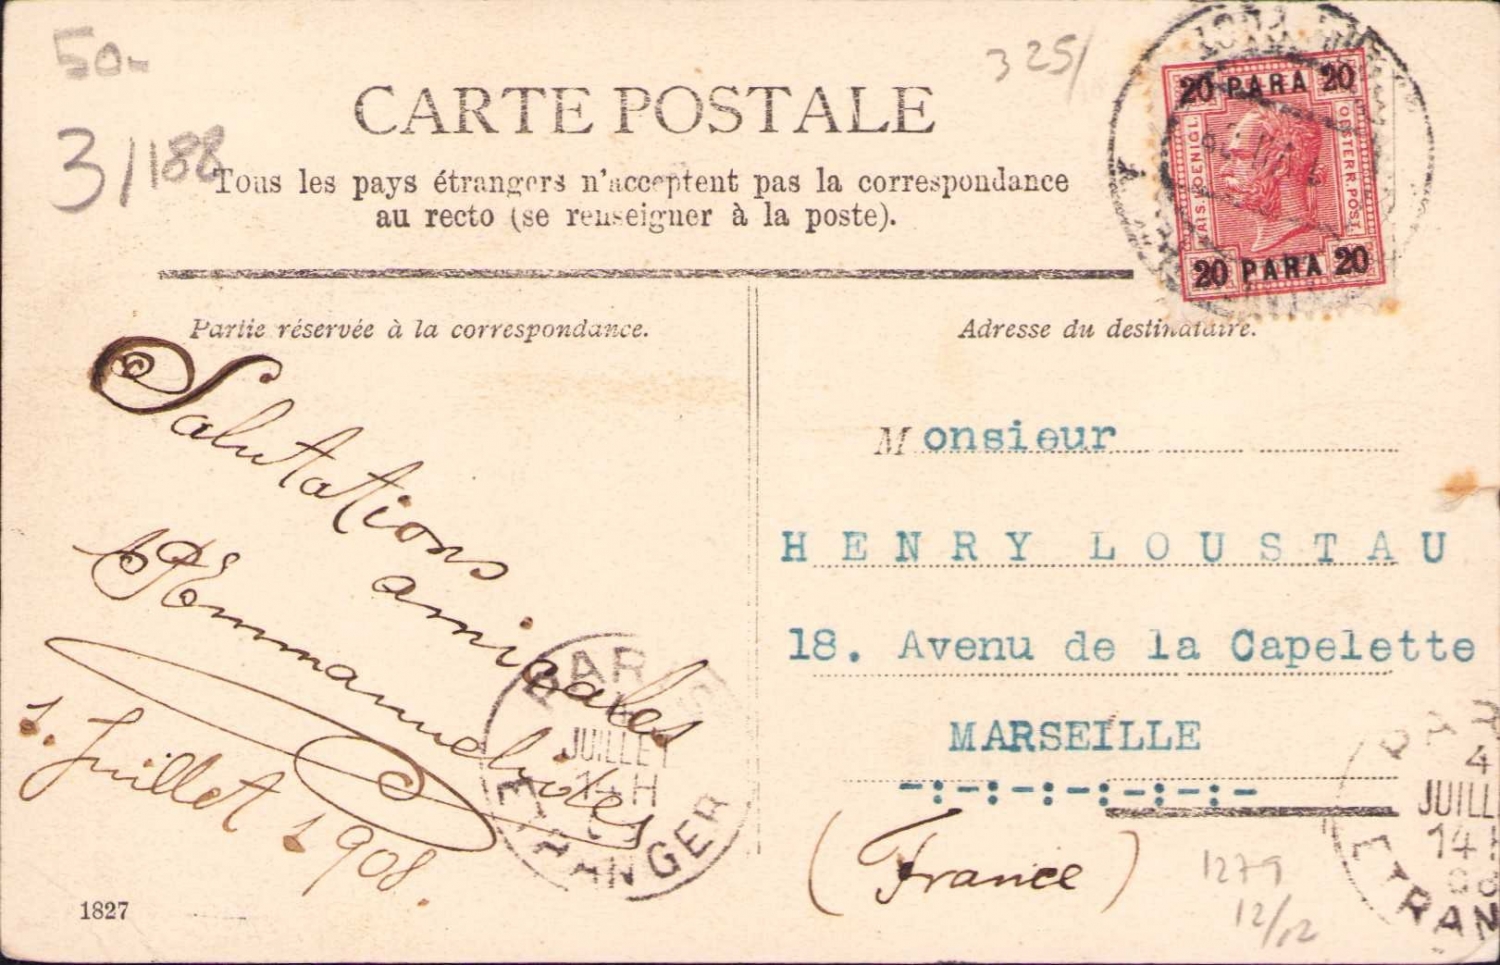 50.-
325/
3/188
CARTE POSTALE
Tous les pays étrangers n'acceptent pas la correspondance
au recto (se renseigner à la poste).
20 PARA 20
KAIS. KOENIGL.
OESTERR. POST.
20 PARA 20
Partie réservée à la correspondance.
Adresse du destinataire.
Salutations
amicales
1. Juillet 1908.
Monsieur
HENRY LOUSTAU
18. Avenu de la Capelette
MARSEILLE
-:-:-:-:-:-:-
(France)
PARIS
JUILLET
14 H
ETRANGER
4
JUILL
14
ETRAN
1279
12/12
1827